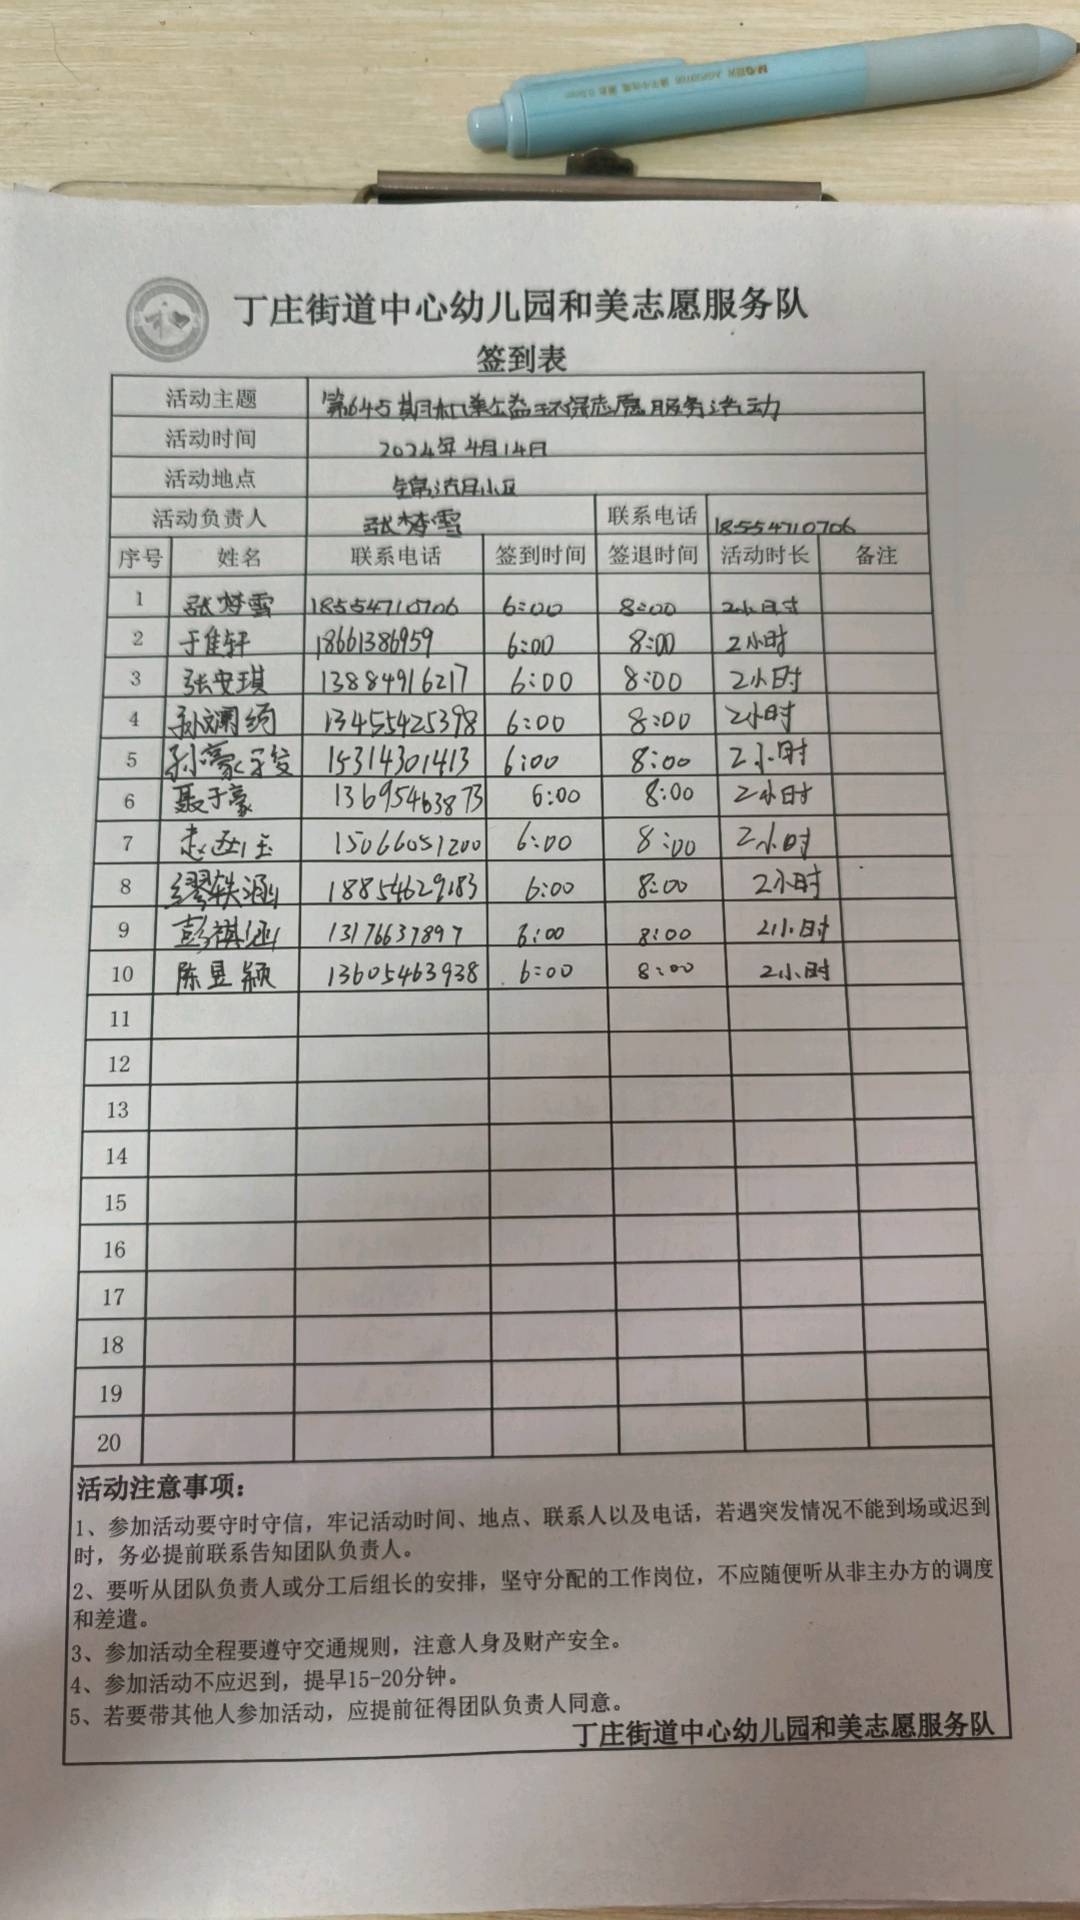 M&G
丁庄街道中心幼儿园和美志愿服务队
签到表
活动主题 第645期和美公益环保志愿服务活动
活动时间 2024年4月14日
活动地点 锦湖月小区
活动负责人 张梦雪 联系电话 18554710706
序号 姓名 联系电话 签到时间 签退时间 活动时长 备注
1 张梦雪 18554710706 6:00 8:00 2小时
2 于佳轩 18661386959 6:00 8:00 2小时
3 张安琪 13884916217 6:00 8:00 2小时
4 孙斓绮 13455425398 6:00 8:00 2小时
5 孙豪 15314301413 6:00 8:00 2小时
6 聂子豪 13695463873 6:00 8:00 2小时
7 15066051200 6:00 8:00 2小时
8 缪轶涵 18854629183 6:00 8:00 2小时
9 彭祺涵 13176637897 6:00 8:00 2小时
10 陈昱颖 13605463938 6:00 8:00 2小时
11
12
13
14
15
16
17
18
19
20
活动注意事项：
1、参加活动要守时守信，牢记活动时间、地点、联系人以及电话，若遇突发情况不能到场或迟到
时，务必提前联系告知团队负责人。
2、要听从团队负责人或分工后组长的安排，坚守分配的工作岗位，不应随便听从非主办方的调度
和差遣。
3、参加活动全程要遵守交通规则，注意人身及财产安全。
4、参加活动不应迟到，提早15-20分钟。
5、若要带其他人参加活动，应提前征得团队负责人同意。
丁庄街道中心幼儿园和美志愿服务队